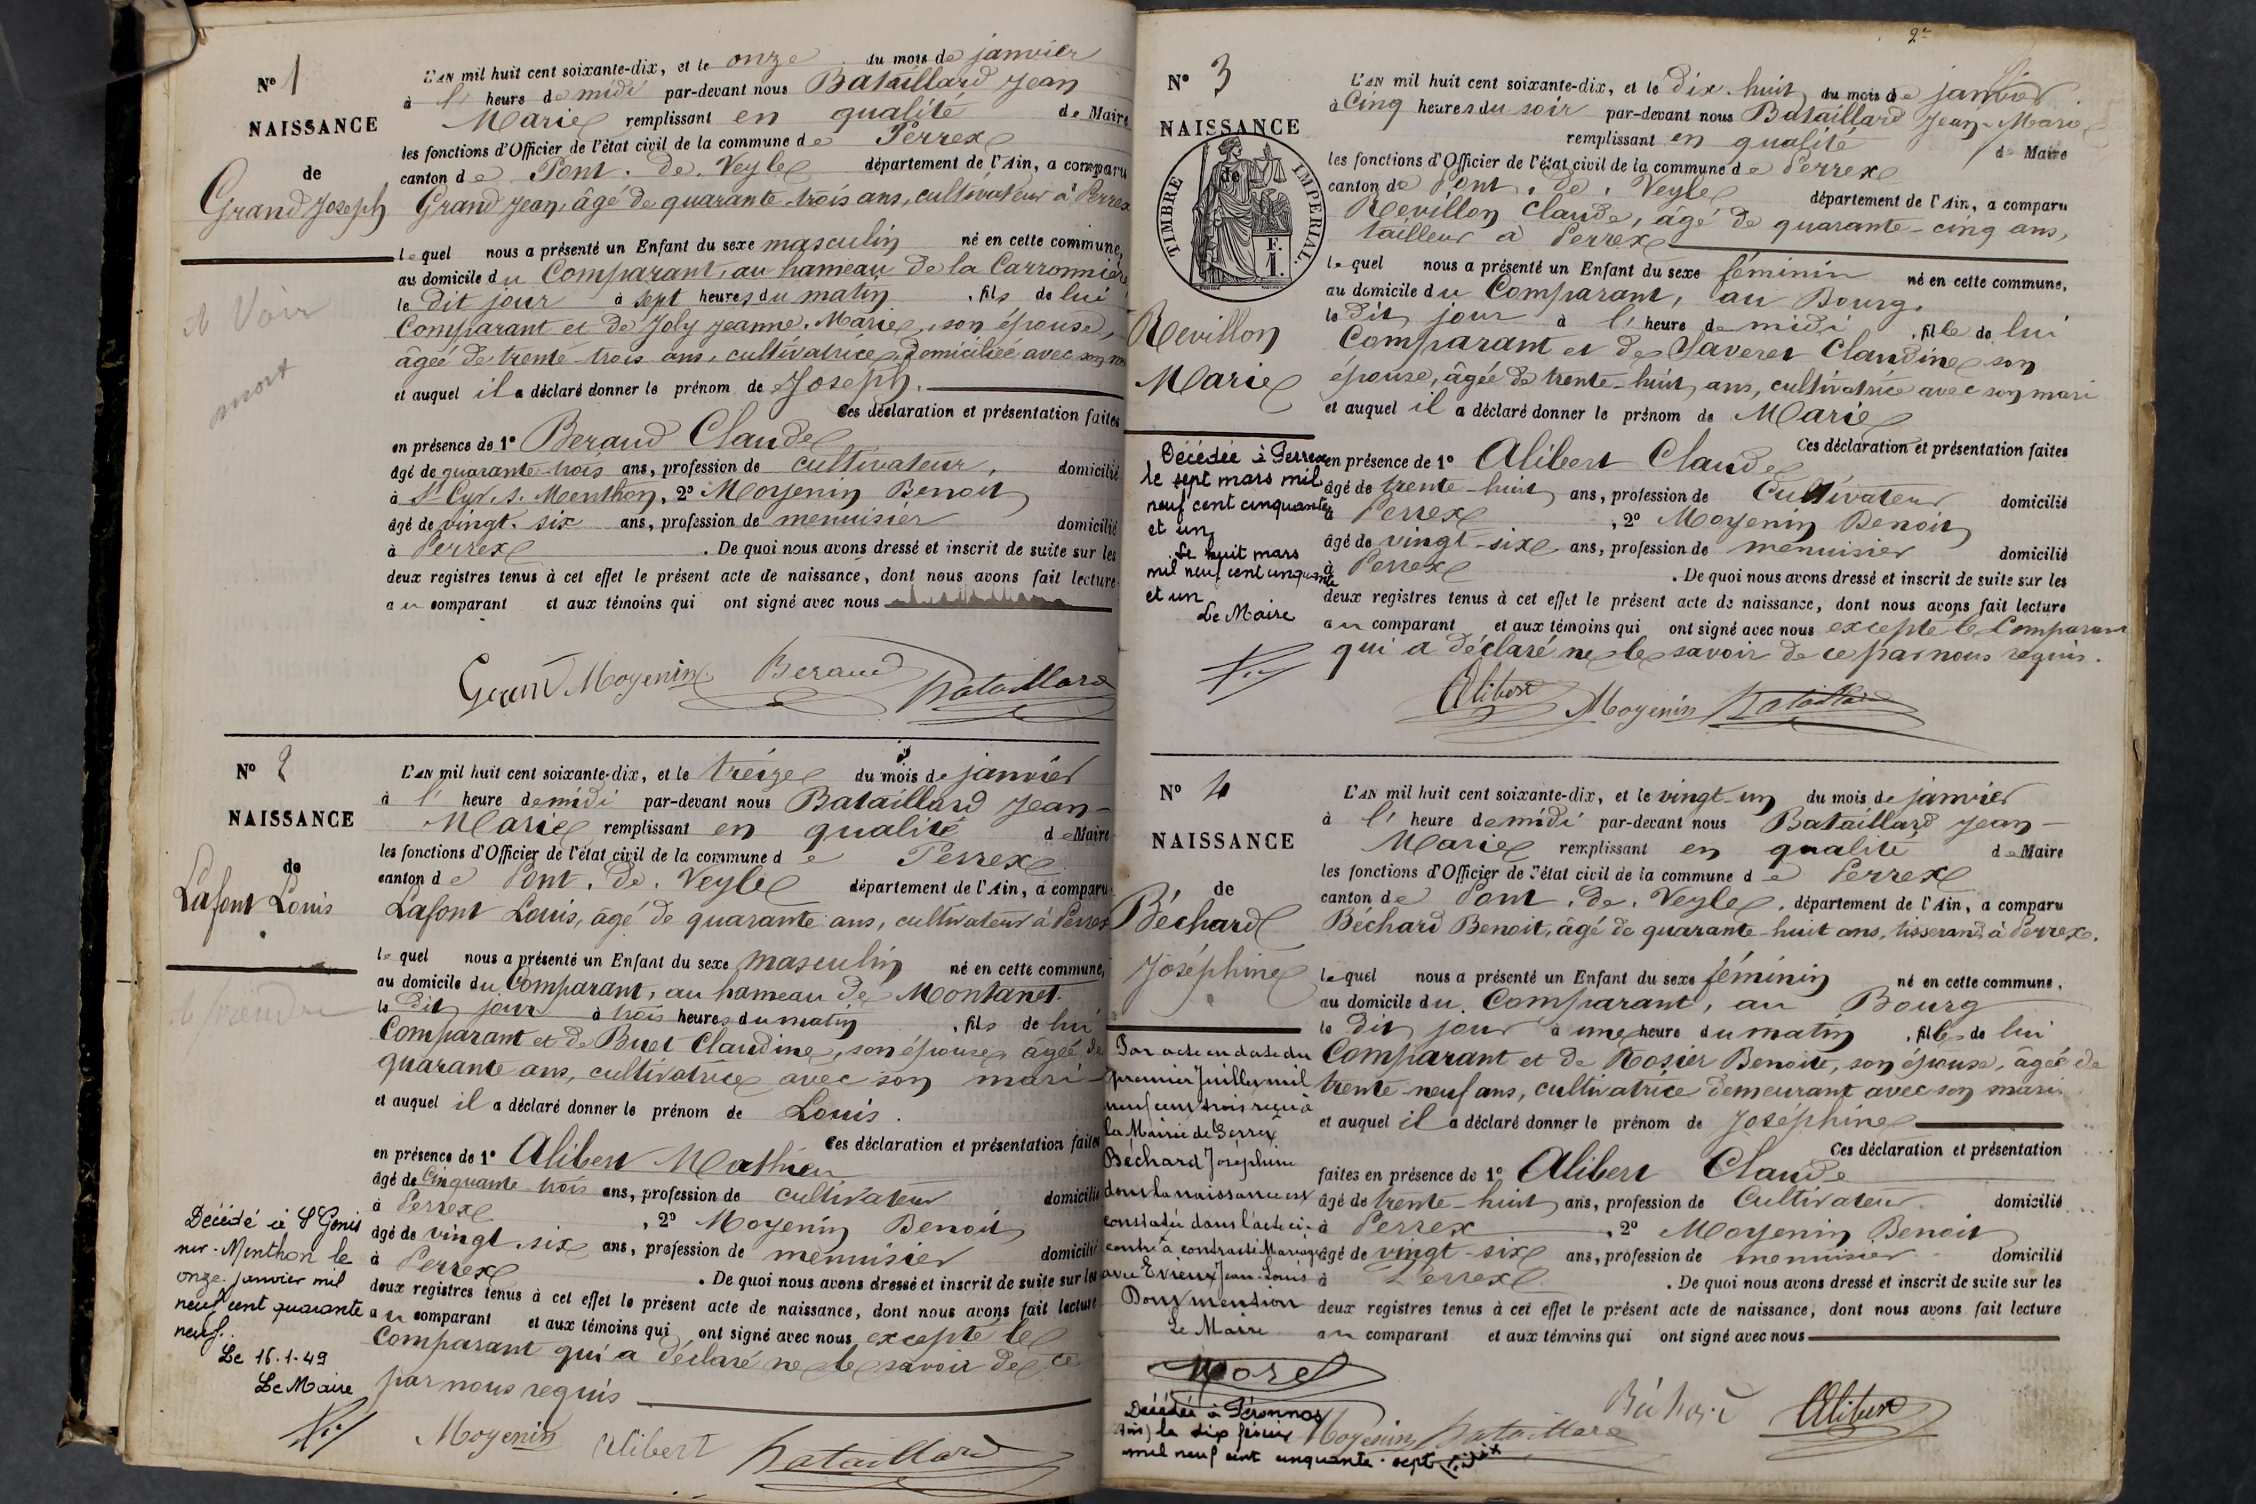 N° 1
NAISSANCE
de
Grand Joseph
à Voir
mort
L'AN mil huit cent soixante-dix, et le onze du mois de janvier
à l' heure de midi par-devant nous Bataillard Jean
Marie remplissant en qualité de Maire
les fonctions d'Officier de l'état civil de la commune de Perrex
canton de Pont. de. Veyle département de l'Ain, a comparu
Grand Jean, âgé de quarante-trois ans, cultivateur à Perrex
lequel nous a présenté un Enfant du sexe masculin né en cette commune,
au domicile du Comparant, au hameau de la Carronnière
le dit jour à sept heures du matin, fils de lui
Comparant et de Joly Jeanne. Marie, son épouse,
âgée de trente-trois ans, cultivatrice, domiciliée avec son
et auquel il a déclaré donner le prénom de Joseph.
Ces déclaration et présentation faites
en présence de 1° Beraud Claude
âgé de quarante-trois ans, profession de cultivateur, domicilié
à St Cyr. s. Menthon, 2° Moyenin Benoit
âgé de vingt. six ans, profession de menuisier domicilié
à Perrex. De quoi nous avons dressé et inscrit de suite sur les
deux registres tenus à cet effet le présent acte de naissance, dont nous avons fait lecture
au comparant et aux témoins qui ont signé avec nous
Grand Moyenin Beraud Bataillard
N° 2
NAISSANCE
de
Lafont Louis
L'AN mil huit cent soixante-dix, et le treize du mois de janvier
à l' heure de midi par-devant nous Bataillard Jean-
Marie remplissant en qualité de Maire
les fonctions d'Officier de l'état civil de la commune de Perrex
canton de Pont. de. Veyle département de l'Ain, a comparu
Lafont Louis, âgé de quarante ans, cultivateur à Perrex
lequel nous a présenté un Enfant du sexe masculin né en cette commune,
au domicile du Comparant, au hameau de Montanet.
le dit jour à trois heures du matin, fils de lui
Comparant et de Buet Claudine, son épouse, âgée de
quarante ans, cultivatrice avec son mari
et auquel il a déclaré donner le prénom de Louis.
Ces déclaration et présentation faites
en présence de 1° Alibert Mathieu
âgé de Cinquante-trois ans, profession de cultivateur domicilié
à Perrex, 2° Moyenin Benoit
âgé de vingt. six ans, profession de menuisier domicilié
à Perrex. De quoi nous avons dressé et inscrit de suite sur les
deux registres tenus à cet effet le présent acte de naissance, dont nous avons fait lecture
au comparant et aux témoins qui ont signé avec nous excepté le
Comparant qui a déclaré ne le savoir de ce
par nous requis
Décédé à St Genis
sur. Menthon le
onze janvier mil
neuf cent quarante
neuf.
Le 16.1.49
Le Maire
Moyenin Alibert Bataillard
2
N° 3
NAISSANCE
de
TIMBRE IMPERIAL.
F.
1.
Revillon
Marie
L'AN mil huit cent soixante-dix, et le dix. huit du mois de janvier
à Cinq heures du soir par-devant nous Bataillard Jean-Marie
remplissant en qualité de Maire
les fonctions d'Officier de l'état civil de la commune de Perrex
canton de Pont. de. Veyle département de l'Ain, a comparu
Revillon Claude, âgé de quarante-cinq ans,
tailleur à Perrex
lequel nous a présenté un Enfant du sexe féminin né en cette commune,
au domicile du Comparant, au Bourg.
le dit jour à l' heure de midi, fille de lui
Comparant et de Saveret Claudine son
épouse, âgée de trente-huit ans, cultivatrice avec son mari
et auquel il a déclaré donner le prénom de Marie
Ces déclaration et présentation faites
en présence de 1° Alibert Claude
âgé de trente-huit ans, profession de Cultivateur domicilié
à Perrex, 2° Moyenin Benoit
âgé de vingt-six ans, profession de menuisier domicilié
à Perrex. De quoi nous avons dressé et inscrit de suite sur les
deux registres tenus à cet effet le présent acte de naissance, dont nous avons fait lecture
au comparant et aux témoins qui ont signé avec nous excepté le Comparant
qui a déclaré ne le savoir de ce par nous requis.
Décédée à Perrex
le sept mars mil
neuf cent cinquante
et un
Le huit mars
mil neuf cent cinquante
et un
Le Maire
Alibert Moyenin Bataillard
N° 4
NAISSANCE
de
Béchard
Joséphine
L'AN mil huit cent soixante-dix, et le vingt-un du mois de janvier
à l' heure de midi par-devant nous Bataillard Jean-
Marie remplissant en qualité de Maire
les fonctions d'Officier de l'état civil de la commune de Perrex
canton de Pont. de. Veyle, département de l'Ain, a comparu
Béchard Benoit, âgé de quarante-huit ans, tisserand à Perrex.
lequel nous a présenté un Enfant du sexe féminin né en cette commune,
au domicile du Comparant, au Bourg
le dit jour à une heure du matin, fille de lui
Comparant et de Rosier Benoite, son épouse, âgée de
trente-neuf ans, cultivatrice demeurant avec son mari
et auquel il a déclaré donner le prénom de Joséphine
Ces déclaration et présentation
faites en présence de 1° Alibert Claude
âgé de trente-huit ans, profession de Cultivateur domicilié
à Perrex, 2° Moyenin Benoit
âgé de vingt-six ans, profession de menuisier domicilié
à Perrex. De quoi nous avons dressé et inscrit de suite sur les
deux registres tenus à cet effet le présent acte de naissance, dont nous avons fait lecture
au comparant et aux témoins qui ont signé avec nous
Par acte en date du
premier Juillet mil
neuf cent trois reçu à
la Mairie de Perrex
Béchard Joséphine
dont la naissance est
constatée dans l'acte ci-
contre a contracté Mariage
avec Evieux Jean-Louis
Pour mention
Le Maire
Morel
Décédée à Péronnas
(Ain) le six février
mil neuf cent cinquante-sept
Moyenin Bataillard
Béchard Alibert